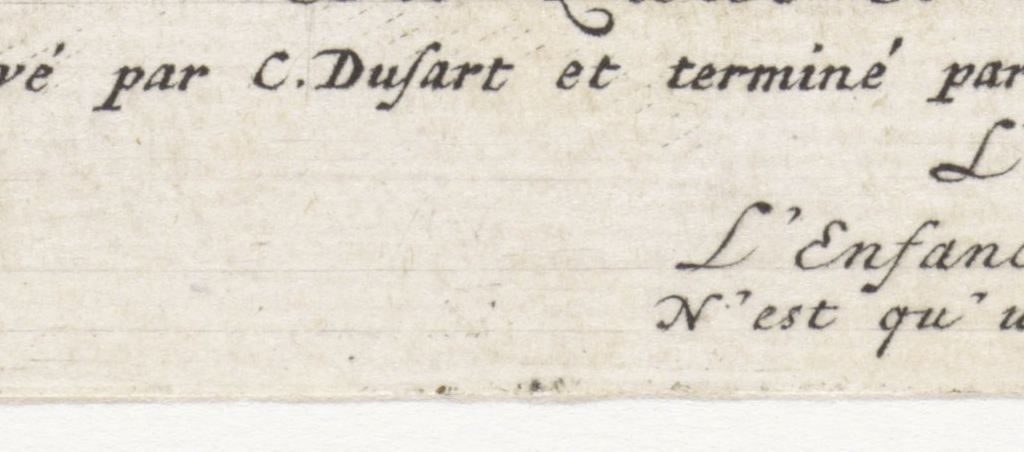 vé par C. Duſart et terminé par
L'
L'Enfanc
N'est qu'u